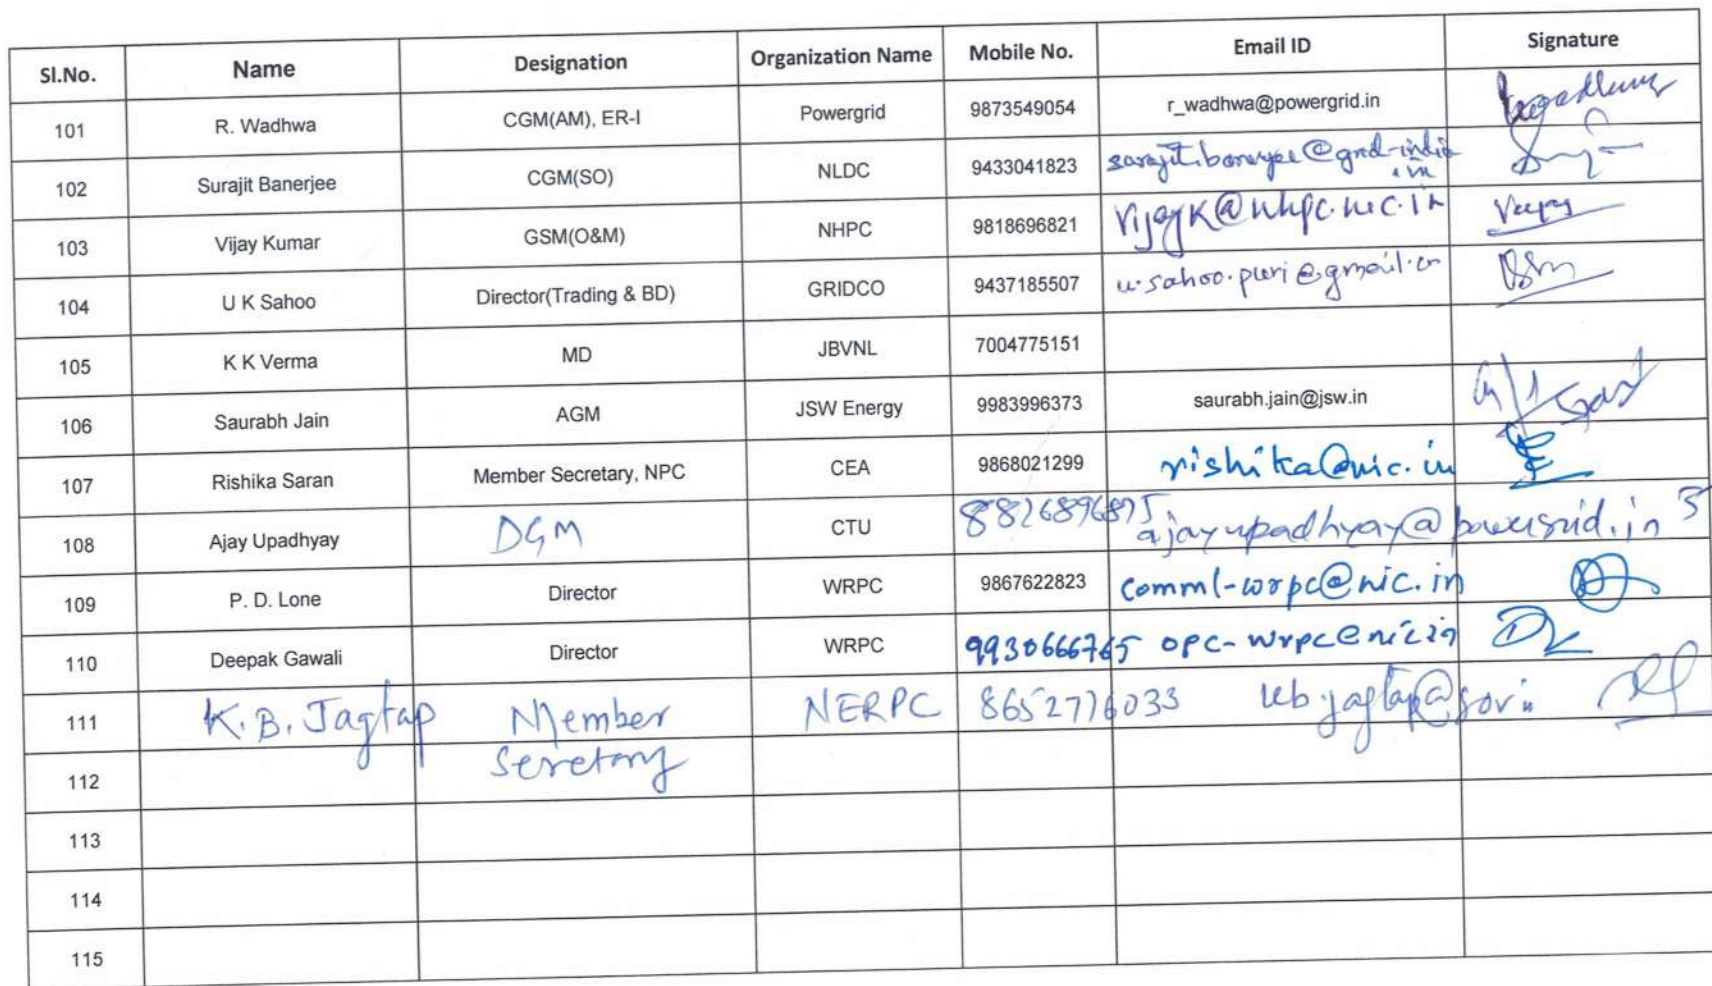 Sl.No. Name Designation Organization Name Mobile No. Email ID Signature
101 R. Wadhwa CGM(AM), ER-I Powergrid 9873549054 r_wadhwa@powergrid.in
102 Surajit Banerjee CGM(SO) NLDC 9433041823 surajit.banerjee@grid-india
.in
103 Vijay Kumar GSM(O&M) NHPC 9818696821 vijayk@nhpc.nic.in
104 U K Sahoo Director(Trading & BD) GRIDCO 9437185507 u.sahoo.puri@gmail.cn
105 K K Verma MD JBVNL 7004775151
106 Saurabh Jain AGM JSW Energy 9983996373 saurabh.jain@jsw.in
107 Rishika Saran Member Secretary, NPC CEA 9868021299 rishika@nic.in
108 Ajay Upadhyay DGM CTU 8826896875 ajayupadhyay@powergrid.in
109 P. D. Lone Director WRPC 9867622823 comml-wrpc@nic.in
110 Deepak Gawali Director WRPC 9930666765 opc-wrpc@nic.in
111 K.B. Jagtap Member NERPC 8652776033 kb.jagtap@gov.in
Secretary
112
113
114
115